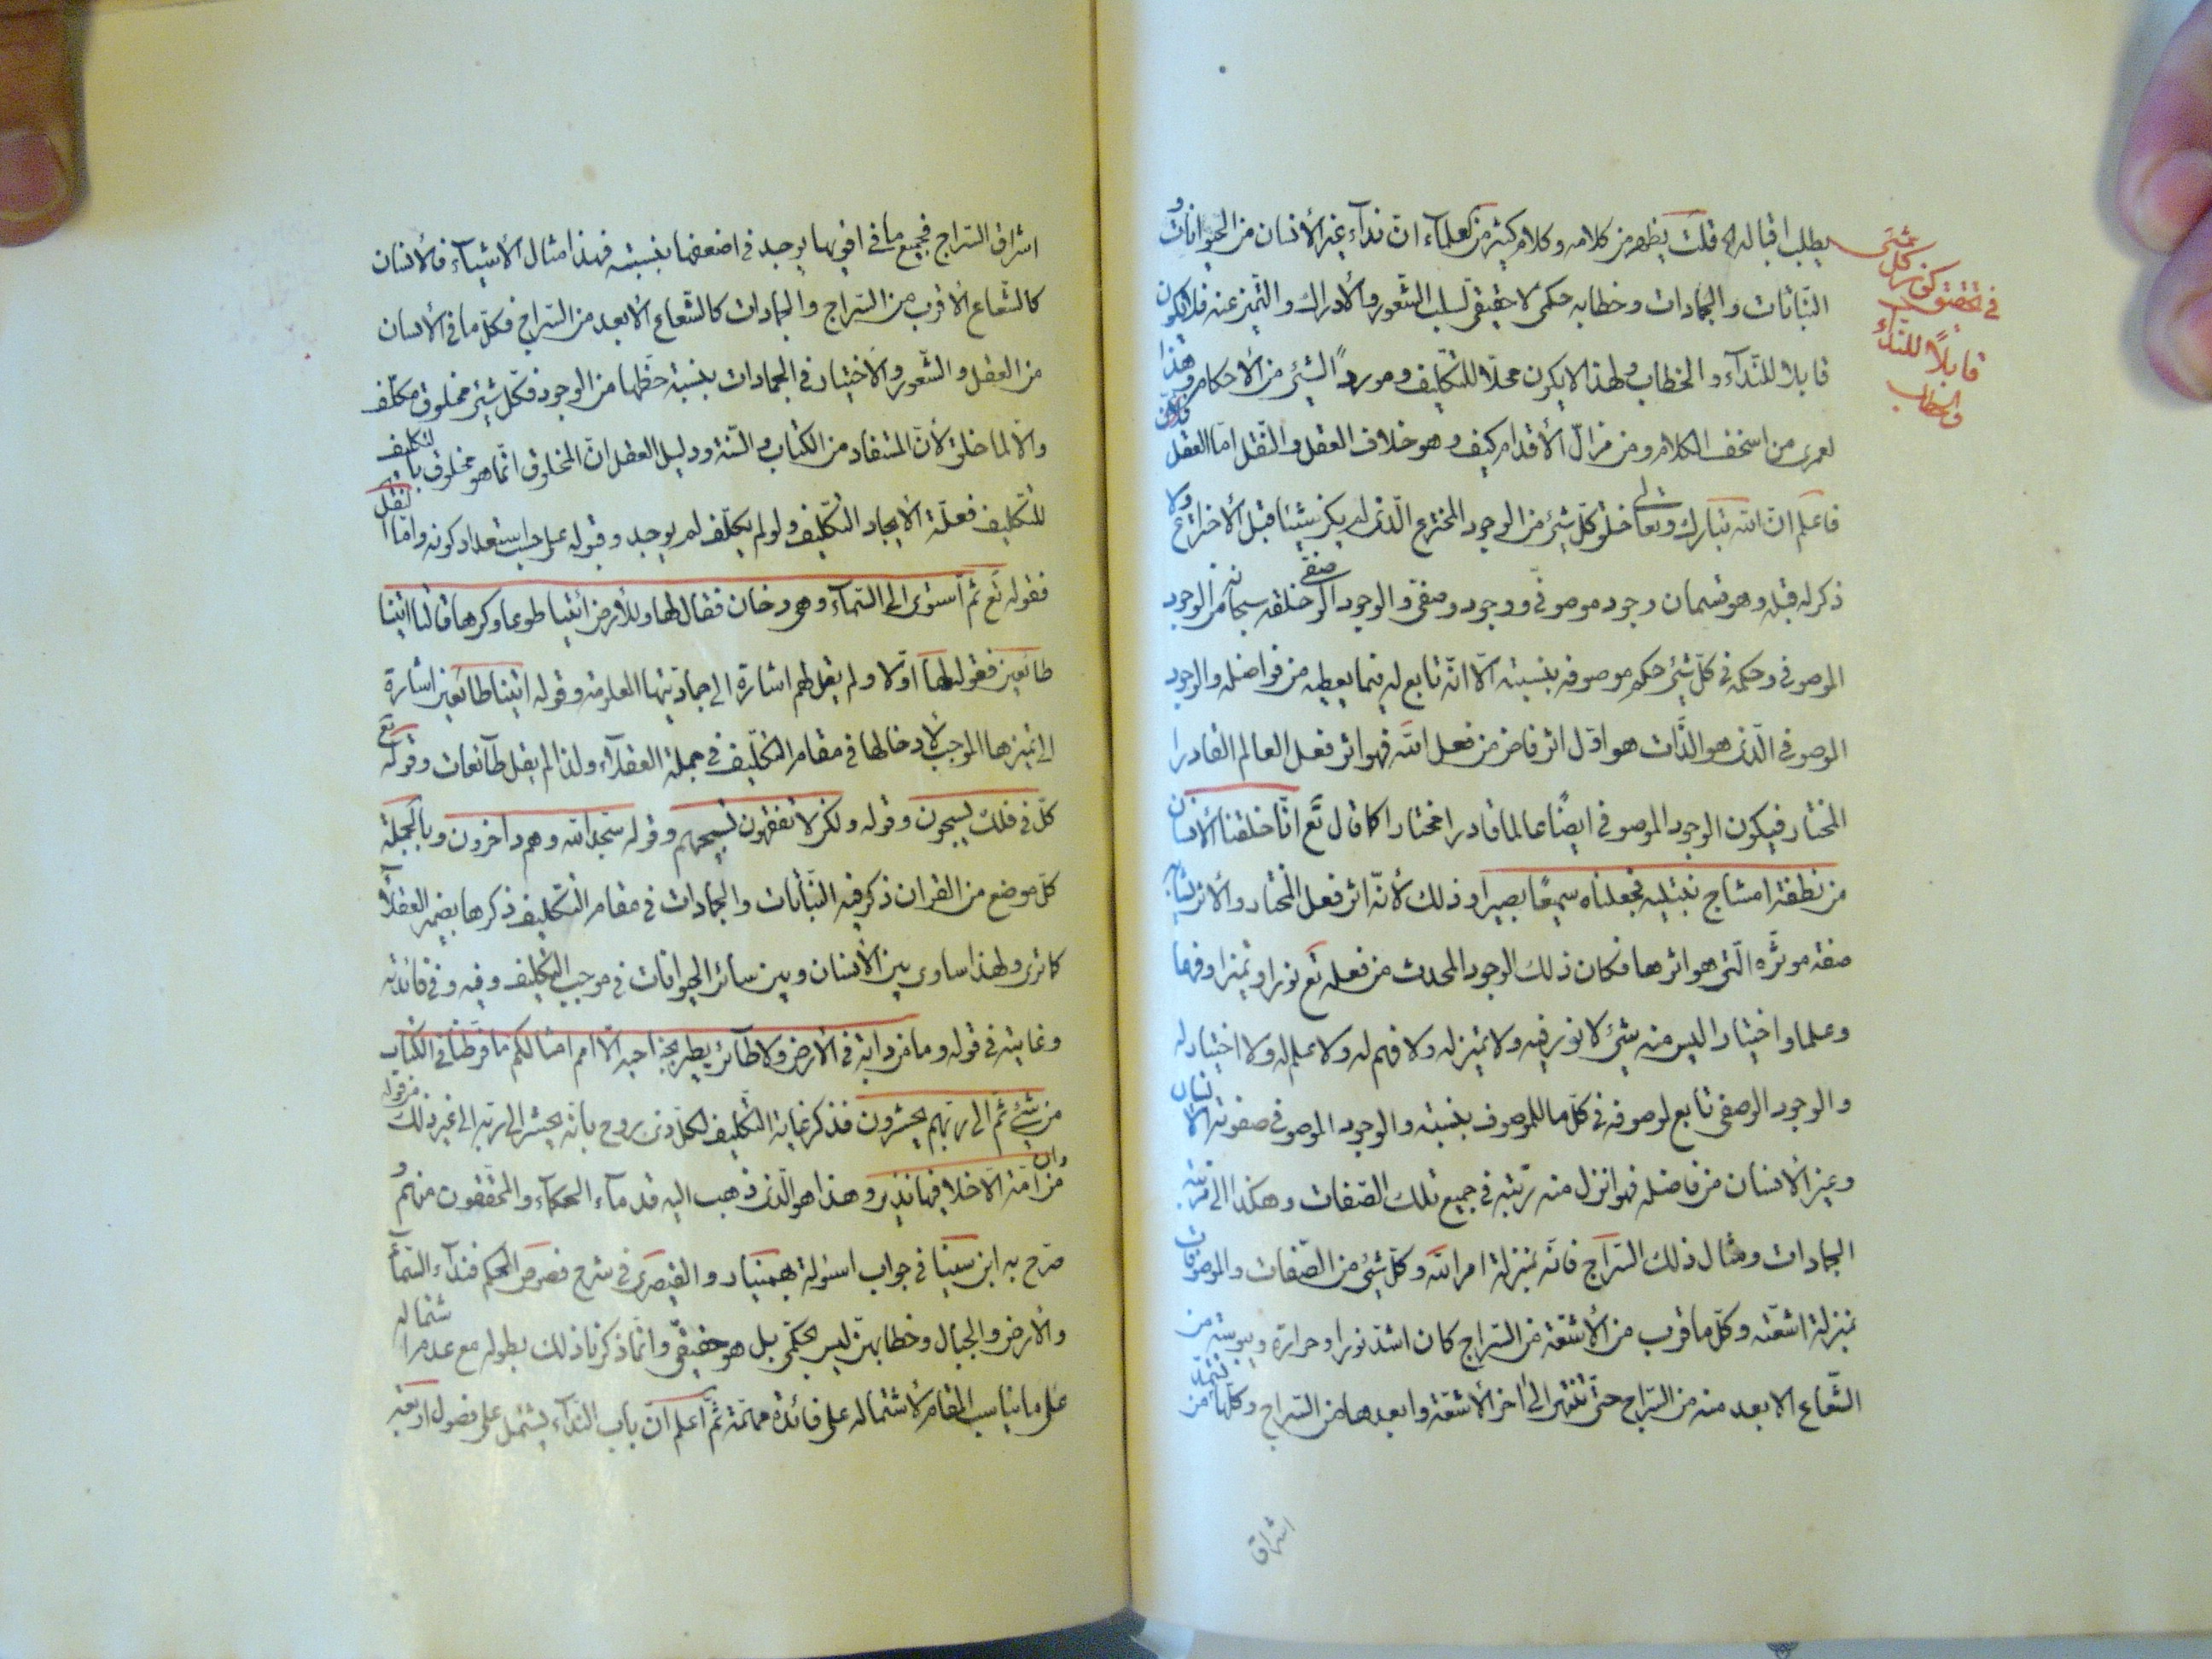 يطلب اقباله فلك يظهر من كلامه وكلام كثير من العلماء ان نداء غير الأنسان من الحيوانات و
النباتات والجمادات وخطابه حكمى لا حقيقى لسلب الشعور والأدراك والتميز عنه فلا يكون
قابلا للنداء والخطاب ولهذا لا يكون محلا للتكليف وموردا لشئ من الأحكام وهذا
لعمرى من اسخف الكلام ومن مزال الأقدام كيف وهو خلاف العقل والنقل اما العقل
فاعلم ان الله تبارك وتعالى خلق كل شئ من الوجود المخترع الذى لم يكن شيئا قبل الأختراع ولا
ذكر له قبله وهو قسمان وجود موصوفى ووجود وصفى والوجود الوصفى خلقه سبحانه من الوجود
الموصوفى وحكمه فى كل شئ حكم موصوفه بنسبته الا انه تابع له فيما يعطيه من فواضله والوجود
الموصوفى الذى هو الذات هو اول اثر فاض من فعل الله فهو اثر فعل العالم القادر
المختار فيكون الوجود الموصوفى ايضا عالما قادرا مختارا كما قال تع انا خلقنا الأنسان
من نطفة امشاج نبتليه فجعلناه سميعا بصيرا وذلك لأنه اثر فعل المختار والأثر يشابه
صفة مؤثره التى هو اثرها فكان ذلك الوجود المحدث من فعله تع نورا وتميزا وفهما
وعلما واختيارا ليس منه شئ لا نور فيه ولا تميز له ولا فهم له ولا علم له ولا اختيار له
والوجود الوصفى تابع لموصوفه فى كل ما للموصوف بنسبته والوجود الموصوفى صفوته الانسان
وغير الأنسان من فاضله فهو انزل منه رتبة فى جميع تلك الصفات وهكذا الى رتبة
الجمادات ومثال ذلك السراج فانه بمنزلة امر الله وكل شئ من الصفات والموصوفات
بمنزلة اشعته وكل ما قرب من الأشعة من السراج كان اشد نورا وحرارة ويبوسة من
الشعاع الابعد منه من السراج حتى تنتهى الى اخر الأشعة وابعدها من السراج وكلها من
اشراق
فى تحقيق كون كل شئ
قابلا للنداء
والخطاب
اشراق السراج فجميع ما فى اقويها يوجد فى اضعفها بنسبته فهذا مثال الأشياء فالأنسان
كالشعاع الأقرب من السراج والجمادات كالشعاع الأبعد من السراج فكل ما فى الأنسان
من العقل والشعور والأختيار فى الجمادات بنسبة حظها من الوجود فكل شئ مخلوق مكلف
والا لما خلق لأن المستفاد من الكتاب والسنة ودليل العقل ان المخلوق انما هو مخلوق بالتكليف
للتكليف فعلة الأيجاد التكليف ولو لم يكلف لم يوجد وقبوله على حسب استعداد كونه واما النقل
فقوله تع ثم استوى الى السماء وهى دخان فقال لها وللأرض ائتيا طوعا وكرها قالتا اتينا
طائعين فقوله لها اولا ولم يقل لهم اشارة الى جماديتها المعلومة وقوله اتينا طائعين اشارة
الى تميزها الموجب لأدخالها فى مقام التكليف فى جملة العقلاء ولذا لم يقل طائعات وقوله تع
كل فى فلك يسبحون وقوله ولكن لا تفقهون تسبيحهم وقوله سجدا لله وهم داخرون وبالجملة
كل موضع من القران ذكر فيه النباتات والجمادات فى مقام التكليف ذكرها بضمير العقلاء
كما ترى ولهذا ساوى بين الأنسان وبين سائر الحيوانات فى موجب التكليف وفيه وفى فائدته
وغايته فى قوله وما من دابة فى الارض ولا طائر يطير بجناحيه الا امم امثالكم ما فرطنا فى الكتاب
من شئ ثم الى ربهم يحشرون فذكر غاية التكليف لكل ذى روح بأنه يحشر الى ربه الى غير ذلك من قوله
وان من امة الا خلا فيها نذير وهذا هو الذى ذهب اليه قدماء الحكماء والمحققون منهم و
صرح به ابن سينا فى جواب اسئولة بهمنيار والقيصرى فى شرح فصوص الحكم فنداء السماء
والأرض والجبال وخطابهن ليس بحكمى بل هو حقيقى وانما ذكرنا ذلك بطوله مع عدم اشتماله
على ما يناسب المقام لأشتماله على فائدة مهمة ثم اعلم ان باب النداء يشتمل على فصول اربعة